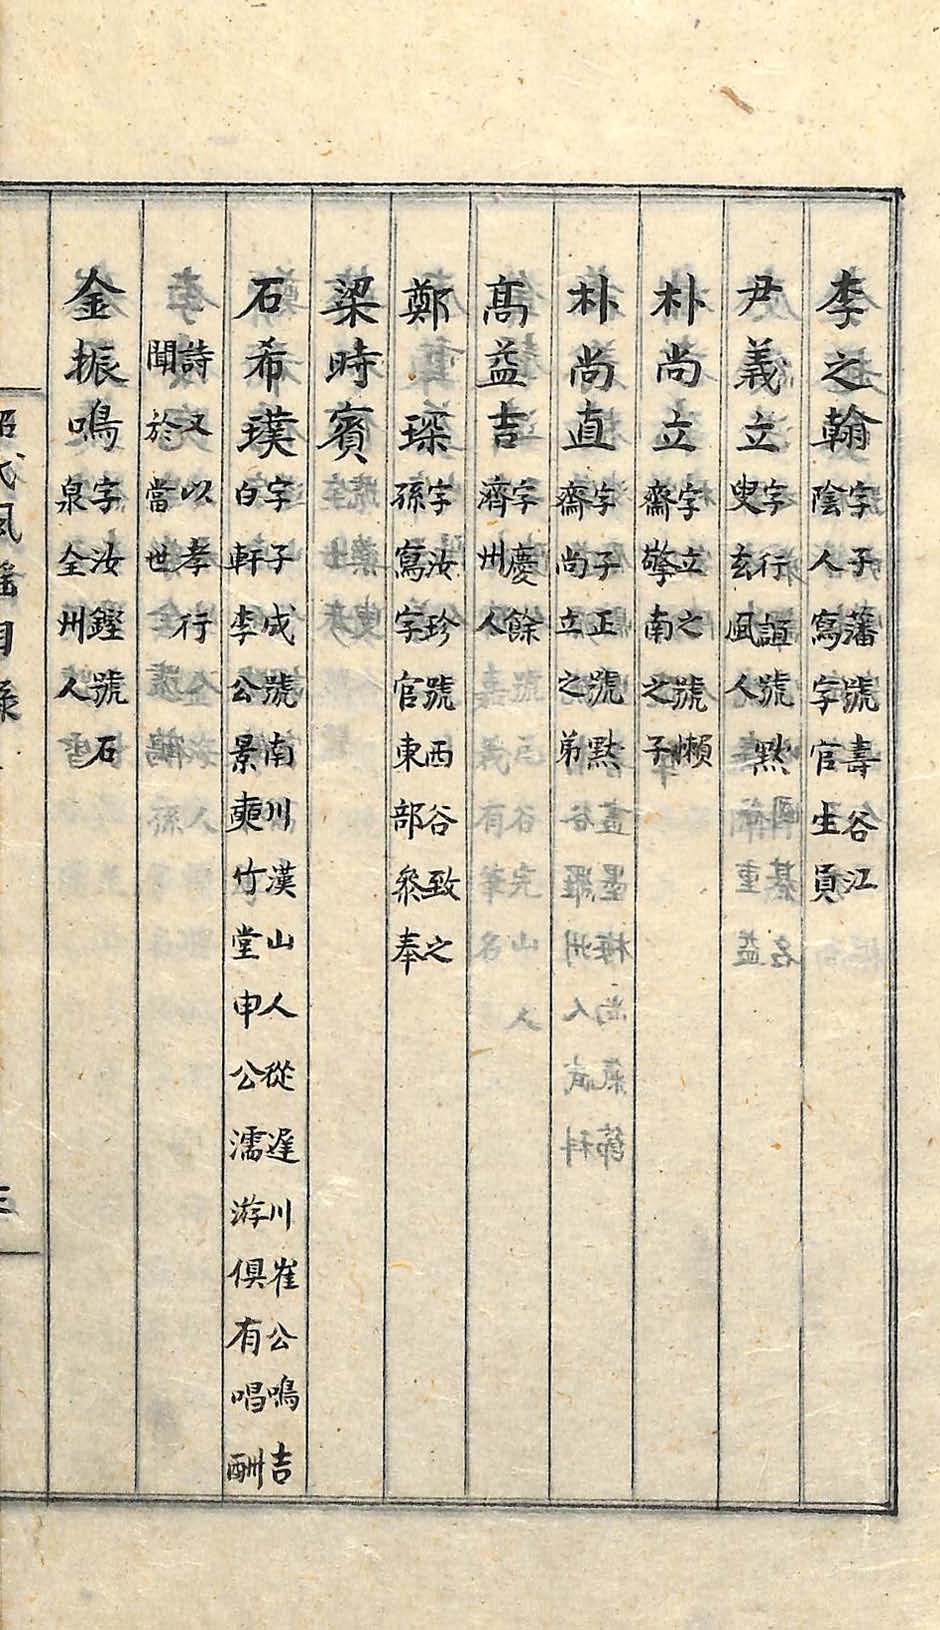 李之翰 字子藩號壽谷江
陰人寫字官生員
尹義立 字行誼號默
叟玄風人
朴尚立 字立之號懶
齋擎南之子
朴尚直 字子正號默
齋尚立之弟
髙益吉 字慶餘
濟州人
鄭琛 字汝珍號西谷致之
孫寫字官東部叅奉
梁時賓
石希璞 字子成號南川漢山人從遲川崔公鳴吉
白軒李公景奭竹堂申公濡游俱有唱酬
詩又以孝行
聞於當世
金振鳴 字汝鏗號石
泉全州人
昭代風謠目錄
三